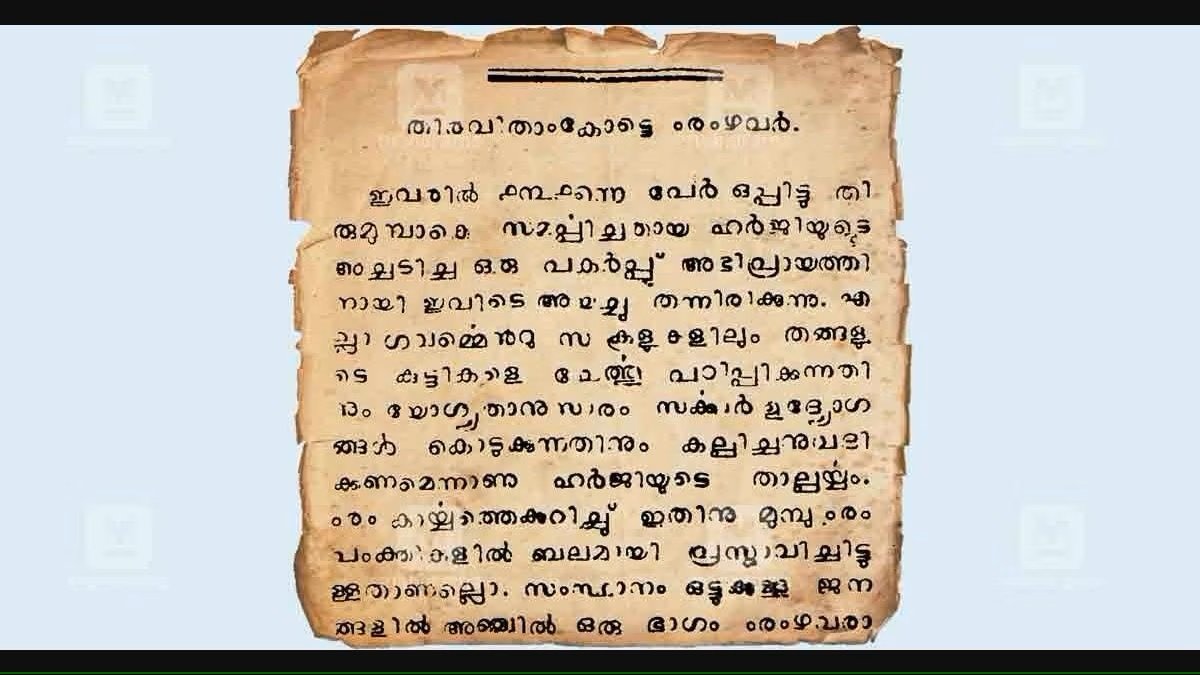 തിരുവിതാംകോട്ടെ ംരംഴവർ.
ഇവരിൽ ൧൩൧൭൬ പേർ ഒപ്പിട്ടു തി
രുമുമ്പാകെ സമൎപ്പിച്ചതായ ഹർജിയുടെ
അച്ചടിച്ച ഒരു പകർപ്പ് അഭിപ്രായത്തി
നായി ഇവിടെ അയച്ചു തന്നിരിക്കുന്നു. എ
ല്ലാ ഗവൎമ്മെൻറു സ്കൂളുകളിലും തങ്ങളു
ടെ കുട്ടികളെ ചേൎത്തു പഠിപ്പിക്കുന്നതി
നും യോഗ്യതാനുസാരം സൎക്കാർ ഉദ്യോഗ
ങ്ങൾ കൊടുക്കുന്നതിനും കല്പിച്ചനുവദി
ക്കണമെന്നാണു ഹർജിയുടെ താല്പൎയ്യം.
ംരം കാൎയ്യത്തെക്കുറിച്ച് ഇതിനു മുമ്പു ംരം
പംക്തികളിൽ ബലമായി പ്രസ്താവിച്ചിട്ടു
ള്ളതാണല്ലൊ. സംസ്ഥാനം ഒട്ടുക്കുള്ള ജന
ങ്ങളിൽ അഞ്ചിൽ ഒരു ഭാഗം ംരംഴവരാ